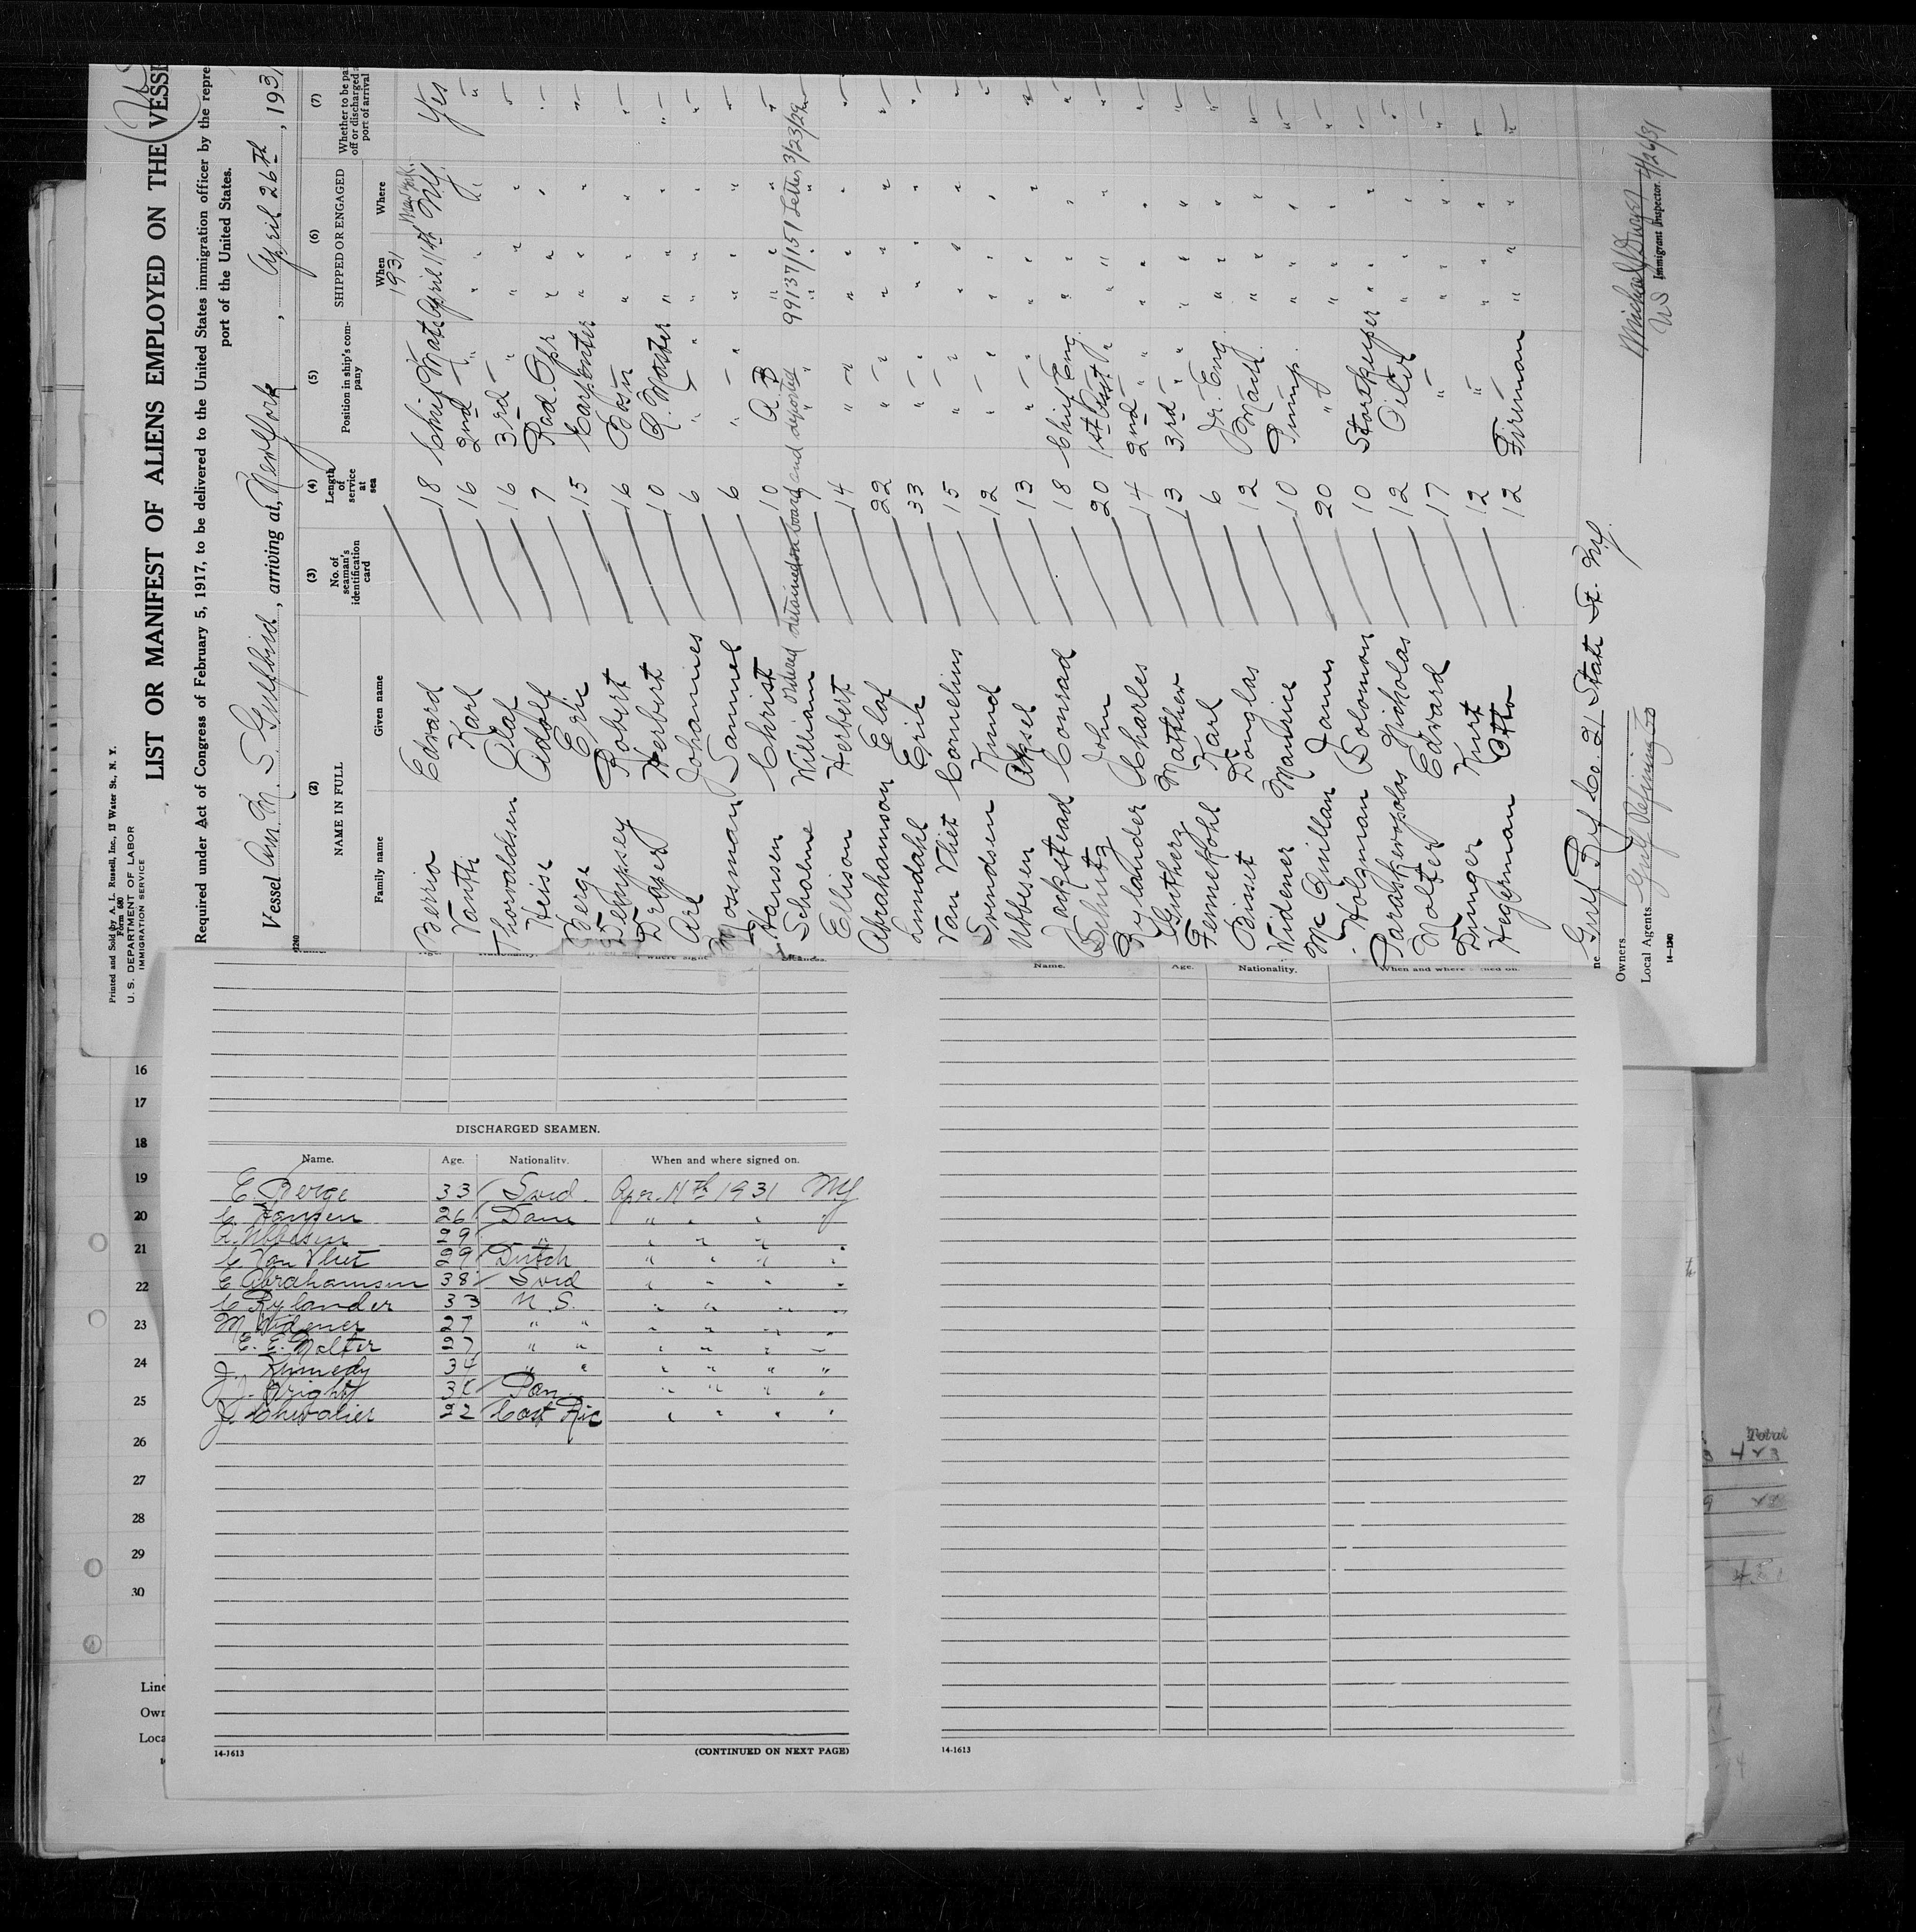 Printed and Sold by A. L. Russell, Inc., 13 Water St., N. Y.
Form 680
U. S. DEPARTMENT OF LABOR
IMMIGRATION SERVICE
LIST OR MANIFEST OF ALIENS EMPLOYED ON THE VESSE
Required under Act of Congress of February 5, 1917, to be delivered to the United States immigration officer by the repre
port of the United States.
Vessel Am. M. S. Gulfbird, arriving at, New York, April 26th, 193
(2) (3) (4) (5) (6) (7)
NAME IN FULL No. of seaman's identification card Length of service at sea Position in ship's company SHIPPED OR ENGAGED Whether to be pai off or discharged a port of arrival
Family name Given name When Where
1931 New York
Berrio Edvard 18 Chief Mate April 11th NY Yes
Vanth Karl 16 2nd — " " " "
Thorvaldsen Olaf 16 3rd — " " " "
Heise Adolf 7 Rad. Opr " " " "
Berge Eric 15 Carpenter " " " "
Dempsey Robert 16 Bosn " " " "
Draper Herbert 10 Q. Master " " " "
Arl Johannes 6 " " " " " "
Mossman Samuel 6 " " " " " "
Hansen Christ 10 A B " " " "
Ordered detained on board and deported 99137/151 Letter 3/23/29
Schalme William 7 " " " "
Ellison Herbert 14 " " " " "
Abrahamson Elof 22 " " " " "
Lundahl Erik 33 " " " " "
Van Vliet Cornelius 15 " " " " "
Svendsen Knud 12 " " " " "
Ubbesen Aksel 13 " " " " "
Jackstead Conrad 18 Chief Eng. " " " "
Schutz John 20 1st Asst " " " "
Rylander Charles 14 2nd " " " " "
Gutherz Mather 13 3rd " " " " "
Fennekohl Karl 6 Jr. Eng. " " " "
Bisset Douglas 12 Mach. " " " "
Widener Maurice 10 Pump. " " " "
McQuillan James 20 " " " " "
Holzman Solomon 10 Storekeeper " " " "
Paraskevopolos Nicholas 12 Oiler " " " "
Molter Edward 17 " " " " "
Dunger Kurt 12 " " " " "
Hegerman Otto 12 Fireman " " " "
ne Gulf Ref Co. 21 State St. NY.
Owners
Local Agents Gulf Refining Co
14—1240
Michael J Dwyer 4/26/31
US Immigrant Inspector.
Name. Age. Nationality. When and where signed on.
16
17
18
19
20
21
22
23
24
25
26
27
28
29
30
DISCHARGED SEAMEN.
Name. Age. Nationality. When and where signed on.
E. Berge 33 Swd. Apr. 11th 1931 NY
C. Hansen 26 Dane " " " "
A. Ubbesen 29 " " " " "
C. Van Vliet 29 Dutch " " " "
E. Abrahamsen 38 Swd " " " "
C. Rylander 33 U. S. " " " "
M. Widener 27 " " " " " "
E. E. Molter 27 " " " " " "
J. Kennedy 34 " " " " " "
J. J. Bright Pan. " " " "
J. Chevalier 22 Cost Ric " " " "
Line
Own
Loca
14-1613 (CONTINUED ON NEXT PAGE) 14-1613
Total